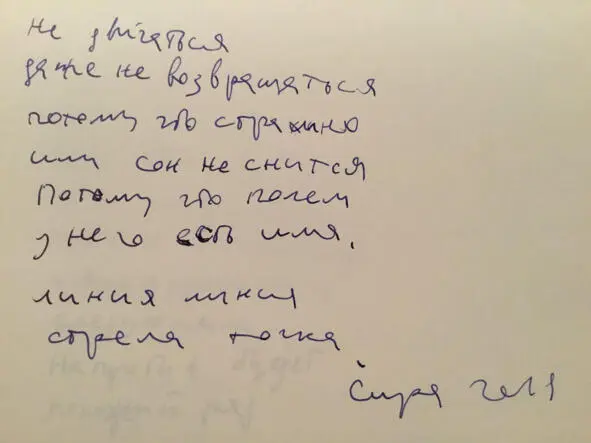 не двигаться
даже не возвращаться
потому что страшно
или сон не снится
Потому что
у него есть имя.
линия линия
стрела точка